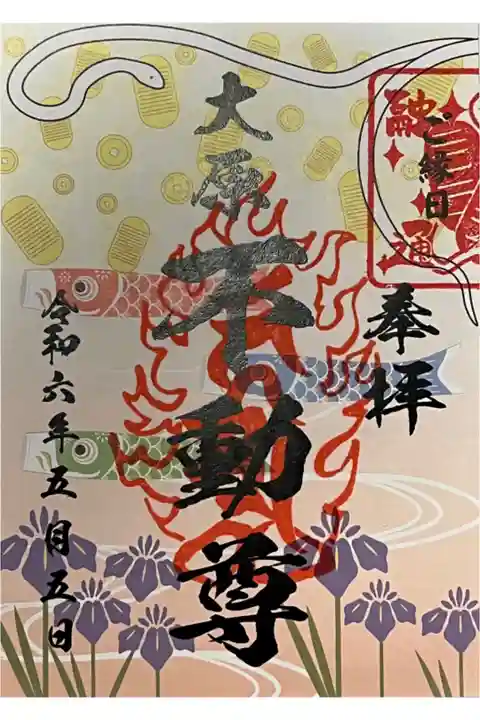 融通
ご縁日
奉拝
大原
不動尊
令和六年五月五日